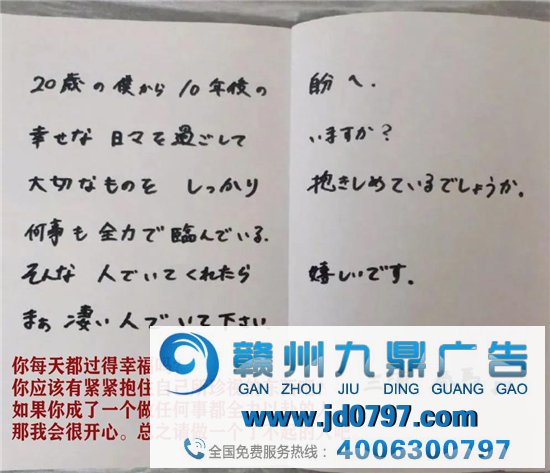 20歳の僕から 10年後の 自分へ.
幸せな 日々を過ごして いますか?
大切なものを しっかり 抱きしめているでしょうか。
何事も 全力で 臨んでいる.
そんな 人でいてくれたら 嬉しいです。
まぁ 凄い人で いて下さい.
你每天都过得幸福
你应该有紧紧抱住自己所珍视
如果你成了一个做任何事都全力以赴的
那我会很开心。总之请做一个了不起的人吧
赣州九鼎广告
GAN ZHOU JIU DING GUANG GAO
www.jd0797.com
全国免费服务热线: 4006300797